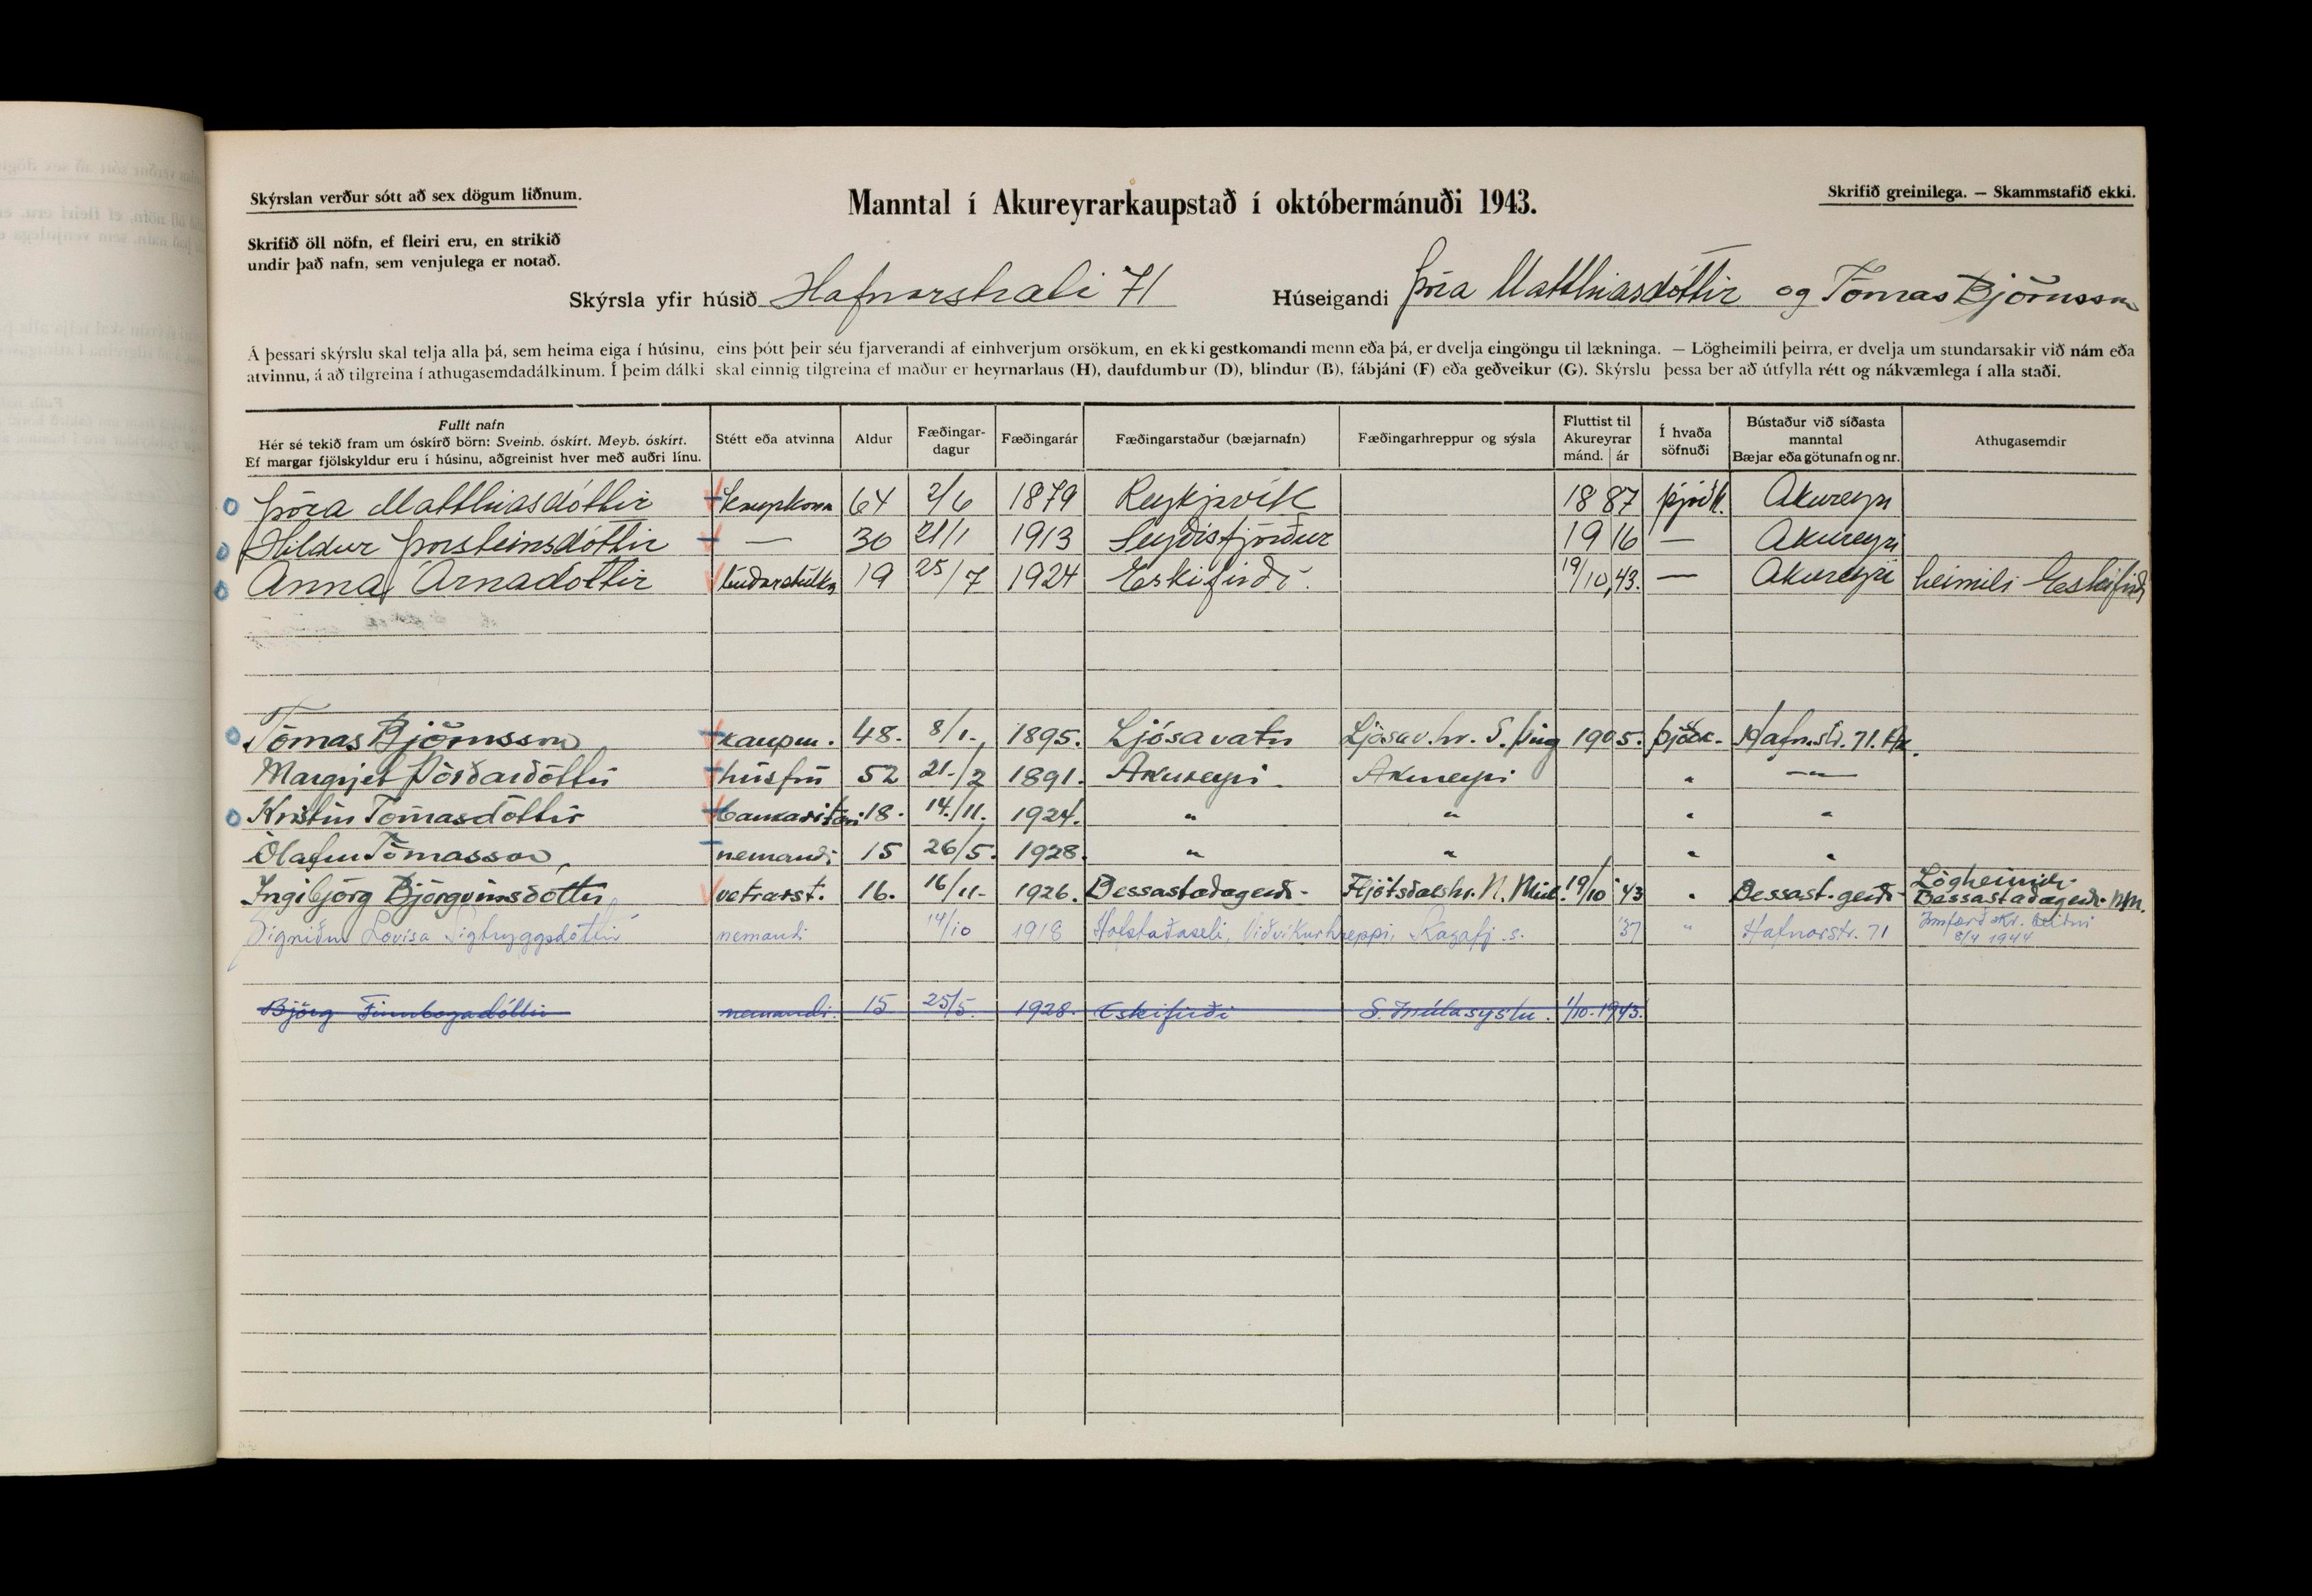 Skýrslan verður sótt að sex dögum liðnum.
Manntal í Akureyrarkaupstað í októbermánuði 1943.
Skrifið greinilega. — Skammstafið ekki.
Skrifið öll nöfn, ef fleiri eru, en strikið
undir það nafn, sem venjulega er notað.
Skýrsla yfir húsið Hafnarstræti 71 Húseigandi Þóra Matthíasdóttir og Tómas Björnsson
Á þessari skýrslu skal telja alla þá, sem heima eiga í húsinu, eins þótt þeir séu fjarverandi af einhverjum orsökum, en ekki gestkomandi menn eða þá, er dvelja eingöngu til lækninga. — Lögheimili þeirra, er dvelja um stundarsakir við nám eða
atvinnu, á að tilgreina í athugasemdadálkinum. Í þeim dálki skal einnig tilgreina ef maður er heyrnarlaus (H), daufdumbur (D), blindur (B), fábjáni (F) eða geðveikur (G). Skýrslu þessa ber að útfylla rétt og nákvæmlega í alla staði.
Fullt nafn
Hér sé tekið fram um óskírð börn: Sveinb. óskírt. Meyb. óskírt.
Ef margar fjölskyldur eru í húsinu, aðgreinist hver með auðri línu.
Stétt eða atvinna
Aldur
Fæðingar-
dagur
Fæðingarár
Fæðingarstaður (bæjarnafn)
Fæðingarhreppur og sýsla
Fluttist til
Akureyrar
mánd. ár
Í hvaða
söfnuði
Bústaður við síðasta
manntal
Bæjar eða götunafn og nr.
Athugasemdir
Þóra Matthíasdóttir kaupkona 64 2/6 1879 Reykjavík 1887 þjóðk. Akureyri
Hildur Þorsteinsdóttir — 30 21/1 1913 Seyðisfjörður 1916 — Akureyri
Anna Árnadóttir búðarstúlka 19 25/7 1924 Eskifirði. 19/10, 43. — Akureyri heimili Eskifirði
Tómas Björnsson kaupm. 48. 8/1. 1895. Ljósavatn Ljósav.hr. S. Þing 1905. þjóðk. Hafn.str. 71. Ak.
Margrjet Þórðardóttir húsfrú 52 21./2 1891. Akureyri Akureyri " —"—
Kristín Tómasdóttir bankaritari 18. 14./11. 1924. " " " "
Ólafur Tómasson nemandi 15 26/5. 1928. " " " "
Ingibjörg Björgvinsdóttir vetrarst. 16. 16/11. 1926. Bessastaðagerði Fljótsdalshr. N. Múl. 19/10 43 " Bessast.gerði Lögheimili
Bessastaðagerði N.M.
Sigríður Lovísa Sigtryggsdóttir nemandi 14/10 1918 Hofstaðaseli, Viðvíkurhreppi, Skagafj.s. '37 " Hafnarstr. 71
8/4 1944
Björg Finnbogadóttir nemandi. 15 25/5. 1928. Eskifirði S. Múlasýslu. 1/10. 1943.